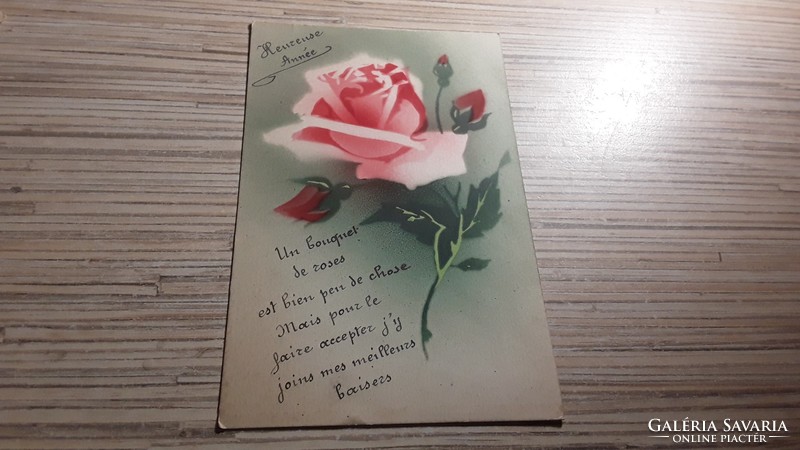 Heureuse
Année
Un bouquet
de roses
est bien peu de chose
Mais pour le
faire accepter j'y
joins mes meilleurs
baisers
GALÉRIA SAVARIA
ONLINE PIACTÉR